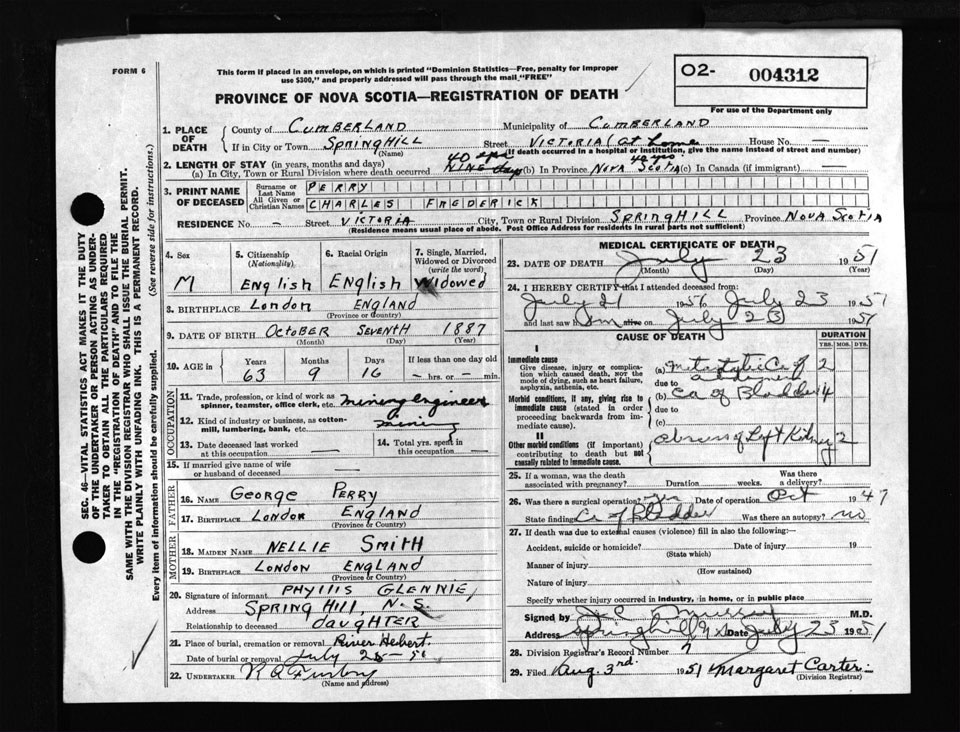 FORM 6
This form if placed in an envelope, on which is printed "Dominion Statistics—Free, penalty for improper
use $300," and properly addressed will pass through the mail "FREE"
PROVINCE OF NOVA SCOTIA—REGISTRATION OF DEATH
O2- 004312
For use of the Department only
1. PLACE OF DEATH
County of CUMBERLAND Municipality of CUMBERLAND
If in City or Town SPRINGHILL Street VICTORIA (at home House No. —
(Name) (If death occurred in a hospital or institution, give the name instead of street and number)
2. LENGTH OF STAY (in years, months and days) 40
(a) In City, Town or Rural Division where death occurred NINE (b) In Province NOVA SCOTIA (c) In Canada (if immigrant)
3. PRINT NAME OF DECEASED
Surname or Last Name PERRY
All Given or Christian Names CHARLES FREDERICK
RESIDENCE No. — Street VICTORIA City, Town or Rural Division SPRINGHILL Province NOVA SCOTIA
(Residence means usual place of abode. Post Office Address for residents in rural parts not sufficient)
4. Sex M
5. Citizenship (Nationality) ENGLISH
6. Racial Origin ENGLISH
7. Single, Married, Widowed or Divorced (write the word) WIDOWED
8. BIRTHPLACE LONDON ENGLAND
(Province or Country)
9. DATE OF BIRTH OCTOBER SEVENTH 1887
(Month) (Day) (Year)
10. AGE in Years Months Days If less than one day old
63 9 16 — hrs. or — min.
OCCUPATION
11. Trade, profession, or kind of work as spinner, teamster, office clerk, etc. mining engineer
12. Kind of industry or business, as cotton-mill, lumbering, bank, etc. mining
13. Date deceased last worked at this occupation —
14. Total yrs. spent in this occupation —
15. If married give name of wife or husband of deceased —
FATHER
16. NAME GEORGE PERRY
17. BIRTHPLACE LONDON ENGLAND
(Province or Country)
MOTHER
18. MAIDEN NAME NELLIE SMITH
19. BIRTHPLACE LONDON ENGLAND
(Province or Country)
20. Signature of informant PHYLLIS GLENNIE
Address SPRING HILL, N.S.
Relationship to deceased DAUGHTER
21. Place of burial, cremation or removal River Hebert.
Date of burial or removal July
22. UNDERTAKER
(Name and address)
MEDICAL CERTIFICATE OF DEATH
23. DATE OF DEATH July 23 1951
(Month) (Day) (Year)
24. I HEREBY CERTIFY that I attended deceased from:
July 21 to July 23 1951
and last saw him alive on July 23 1951
CAUSE OF DEATH DURATION
YRS. MOS. DYS.
I
Immediate cause
Give disease, injury or complication which caused death, not the mode of dying, such as heart failure, asphyxia, asthenia, etc.
(a) Metastatic Ca of 2
due to
Morbid conditions, if any, giving rise to immediate cause (stated in order proceeding backwards from immediate cause).
(b) Ca of Bladder 4
due to
(c)
II
Other morbid conditions (if important) contributing to death but not causally related to immediate cause.
abscess of Left Kidney 2
25. If a woman, was the death associated with pregnancy? Duration weeks. Was there a delivery?
26. Was there a surgical operation? Yes Date of operation Oct 1947
State finding Ca of Bladder Was there an autopsy? no
27. If death was due to external causes (violence) fill in also the following:
Accident, suicide or homicide? Date of injury 19
(State which)
Manner of injury
(How sustained)
Nature of injury
Specify whether injury occurred in industry, in home, or in public place
Signed by Murray M.D.
Address Springhill N S Date July 23 1951
28. Division Registrar's Record Number 7
29. Filed Aug. 3rd. 1951 Margaret Carter.
(Division Registrar)
SEC. 46—VITAL STATISTICS ACT MAKES IT THE DUTY
OF THE UNDERTAKER OR PERSON ACTING AS UNDER-
TAKER TO OBTAIN ALL THE PARTICULARS REQUIRED
IN THE "REGISTRATION OF DEATH" AND TO FILE THE
SAME WITH THE DIVISION REGISTRAR WHO SHALL ISSUE THE BURIAL PERMIT.
WRITE PLAINLY WITH UNFADING INK. THIS IS A PERMANENT RECORD.
Every item of information should be carefully supplied. (See reverse side for instructions.)